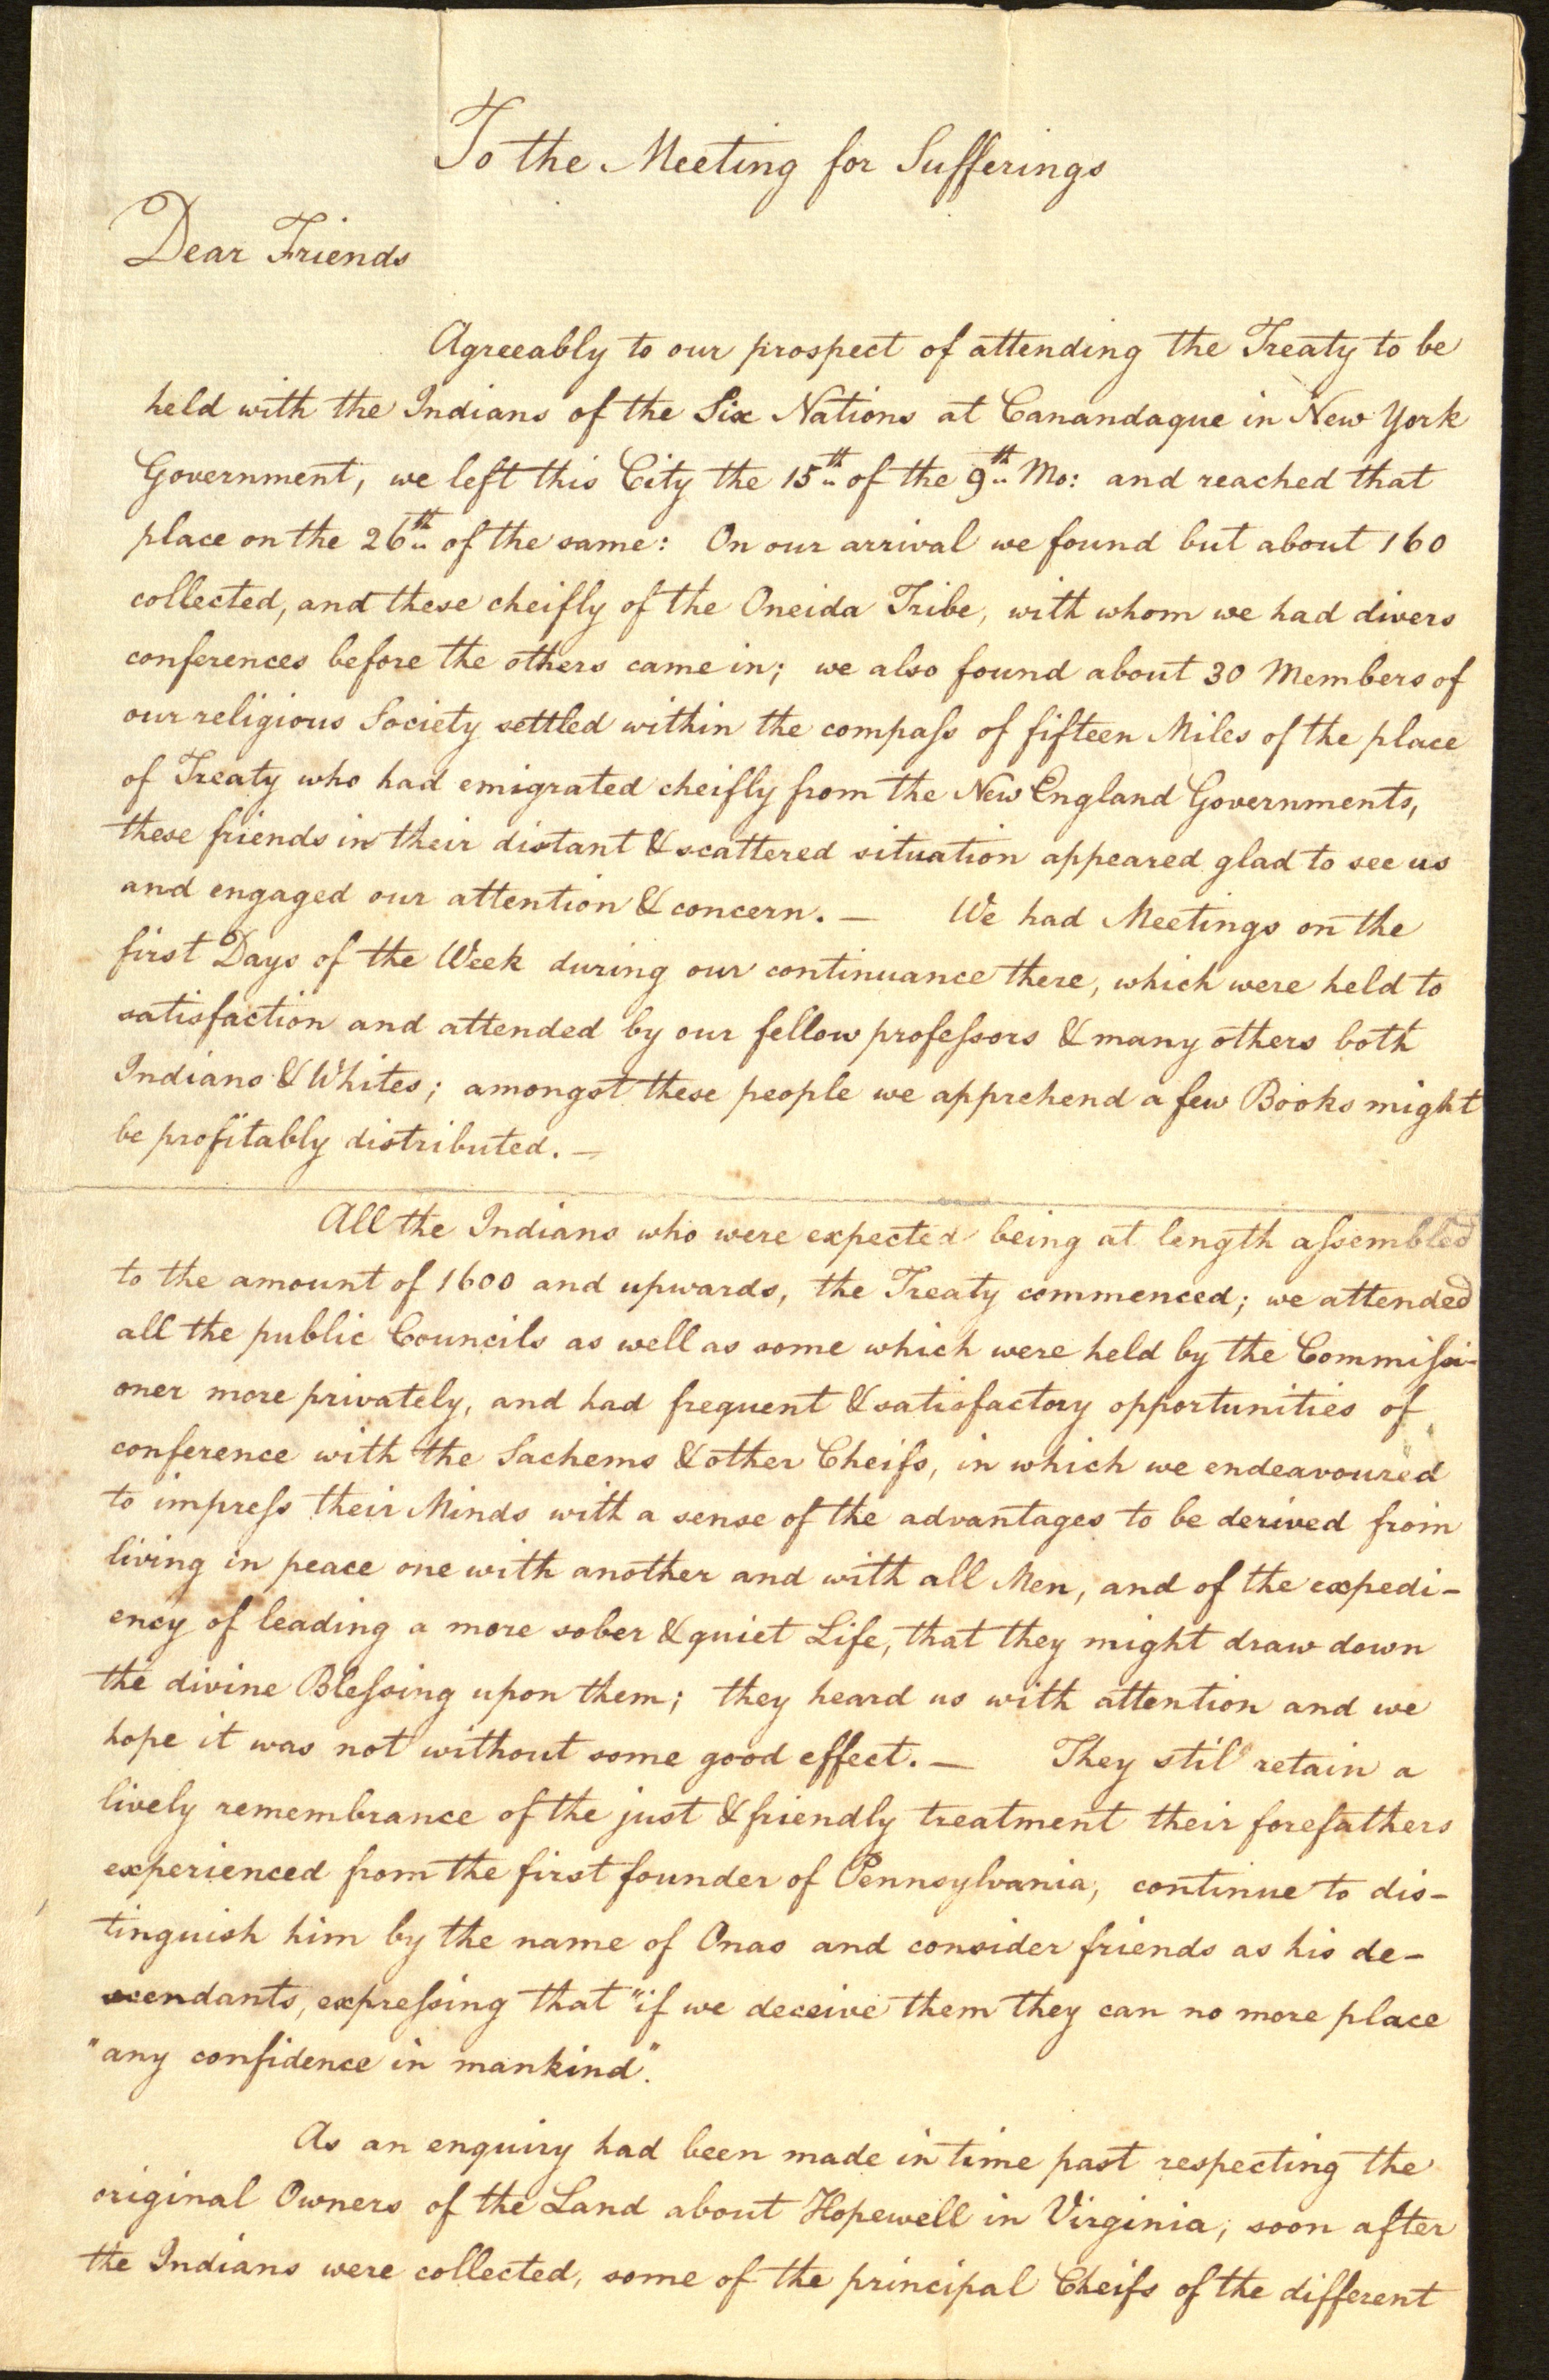 To the Meeting for Sufferings
Dear Friends
Agreeably to our prospect of attending the Treaty to be
held with the Indians of the Six Nations at Canandaque in New York
Government, we left this City the 15th of the 9th Mo: and reached that
place on the 26th of the same: On our arrival we found but about 160
collected, and these cheifly of the Oneida Tribe, with whom we had divers
conferences before the others came in; we also found about 30 Members of
our religious Society settled within the compaſs of fifteen Miles of the place
of Treaty who had emigrated cheifly from the New England Governments,
these friends in their distant & scattered situation appeared glad to see us
and engaged our attention & concern. — We had Meetings on the
first Days of the Week during our continuance there, which were held to
satisfaction and attended by our fellow profeſsors & many others both
Indians & Whites; amongst these people we apprehend a few Books might
be profitably distributed. —
All the Indians who were expected being at length aſsembled
to the amount of 1600 and upwards, the Treaty commenced; we attended
all the public Councils as well as some which were held by the Commiſsi-
oner more privately, and had frequent & satisfactory opportunities of
conference with the Sachems & other Cheifs, in which we endeavoured
to impreſs their Minds with a sense of the advantages to be derived from
living in peace one with another and with all Men, and of the expedi-
ency of leading a more sober & quiet Life, that they might draw down
the divine Bleſsing upon them; they heard us with attention and we
hope it was not without some good effect. — They stil retain a
lively remembrance of the just & friendly treatment their forefathers
experienced from the first founder of Pennsylvania, continue to dis-
tinguish him by the name of Onas and consider friends as his de-
scendants, expreſsing that "if we deceive them they can no more place
"any confidence in mankind".
As an enquiry had been made in time past respecting the
original Owners of the Land about Hopewell in Virginia; soon after
the Indians were collected, some of the principal Cheifs of the different